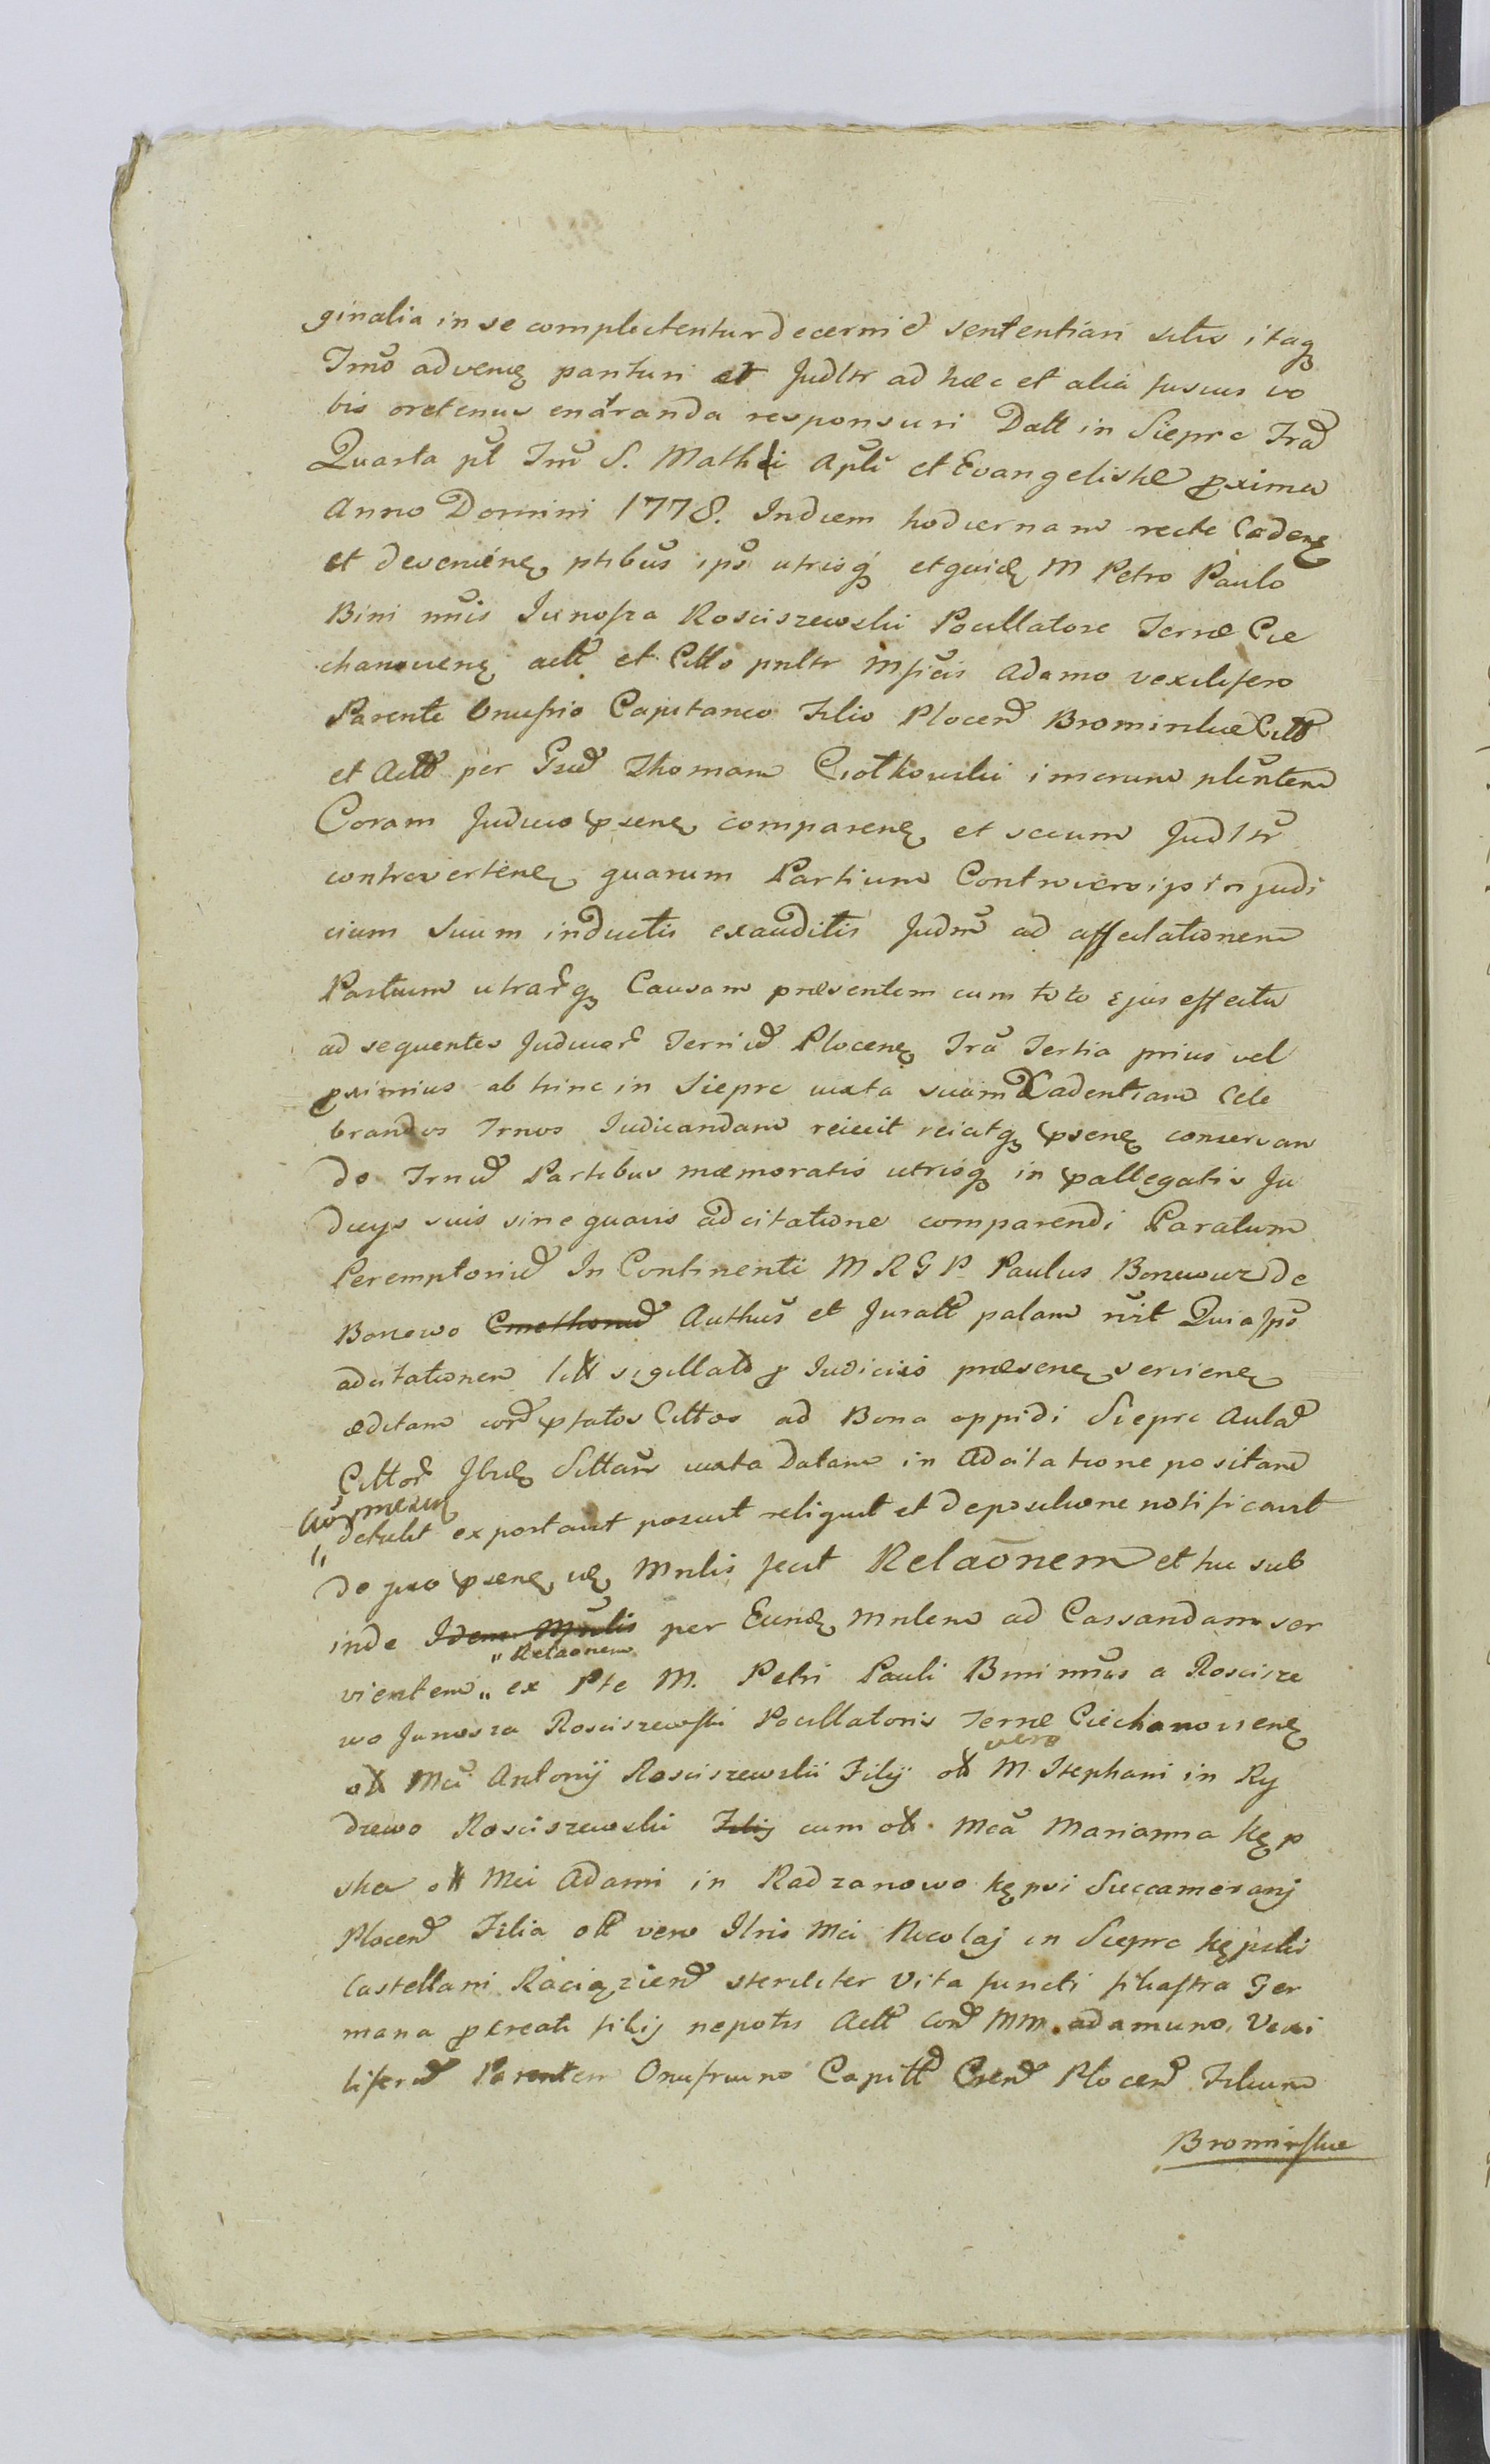 ginalia in se complectentur decerni et sententiari sitis itaq
Tmo advenien parituri et Judltr ad hæc et alia fusius vo
bis oretenus enarranda responsuri Datt in Sieprc Fra
Quarta pt Tm S. Mathæi Apli et Evangelistæ pxima
Anno Domini 1778. In diem hodiernam recte Caden
et devenien ptibus ips utrisq et quid M Petro Paulo
Bini nnis Junosza Rosciszewski Pocillatore Terræ Cie
chanovien act et Citto pnltr Mficis Adamo vexillifero
Parente Onufrio Capitaneo Filio Plocen Bromirskie Citt
et Act per Gsu Thomam Ciołkowski imorum plentem
Coram Judicio psen comparen et secum Judltr
controverten quarum Partium Controversijs in judi
cium suum inductis exauditis Judm ad affectationem
Partium utrarq Causam præsentem cum toto ejus effectu
ad sequentes Judiciar Terr Plocen Fra Tertia prius vel
pximius ab hinc in Sieprc iuxta suam Cadentiam Cele
brandos Trnos Iudicandam reiecit reicitq psen conservan
do Trn Partibus mæmoratis utrisq in pallegatis Ju
dicys suis sine quavis adcitatione comparendi Paratum
Peremptoriu In Continenti M R G P Paulus Bonewicz de
Bonewo Authus et Juratt palam rvit Quia Ips
adcitationem litt sigillat p Iudicio præsen servien
æditam cor pfatos Cittos ad Bona oppidi Sieprc Aula
Cittor Ibid Sittam iuxta Datam in Adcitatione positam
detulit exportavit posuit reliquit et depositione notificavit
de quo psen id Mnlis fecit Relaonem et hic sub
inde Idem Mnlis per Eund Mnlem ad Cassandam ser
"Relaonem
vientem" ex Pte M. Petri Pauli Bini nnis a Roscisze
wo Junosza Rosciszewski Pocillatoris Terræ Ciechanovien
vero
ol Mci Antonij Rosciszewskii Filij ol M. Stephani in Ry
dzewo Rosciszewski Filij cum ol Mca Marianna Kęp
ska ol Mci Adami in Radzanowo Kępski Succamerarij
Plocen Filia ol vero Ilris Mci Nicolaj in Sieprc Kępski
Castellani Raciązien steriliter Vita functi filiastra Ger
mana pcreati filij nepotis Act con MM. Adamum Vexi
liferu Parentem Onufrium Capitt Plocen Filium
Bromirskie